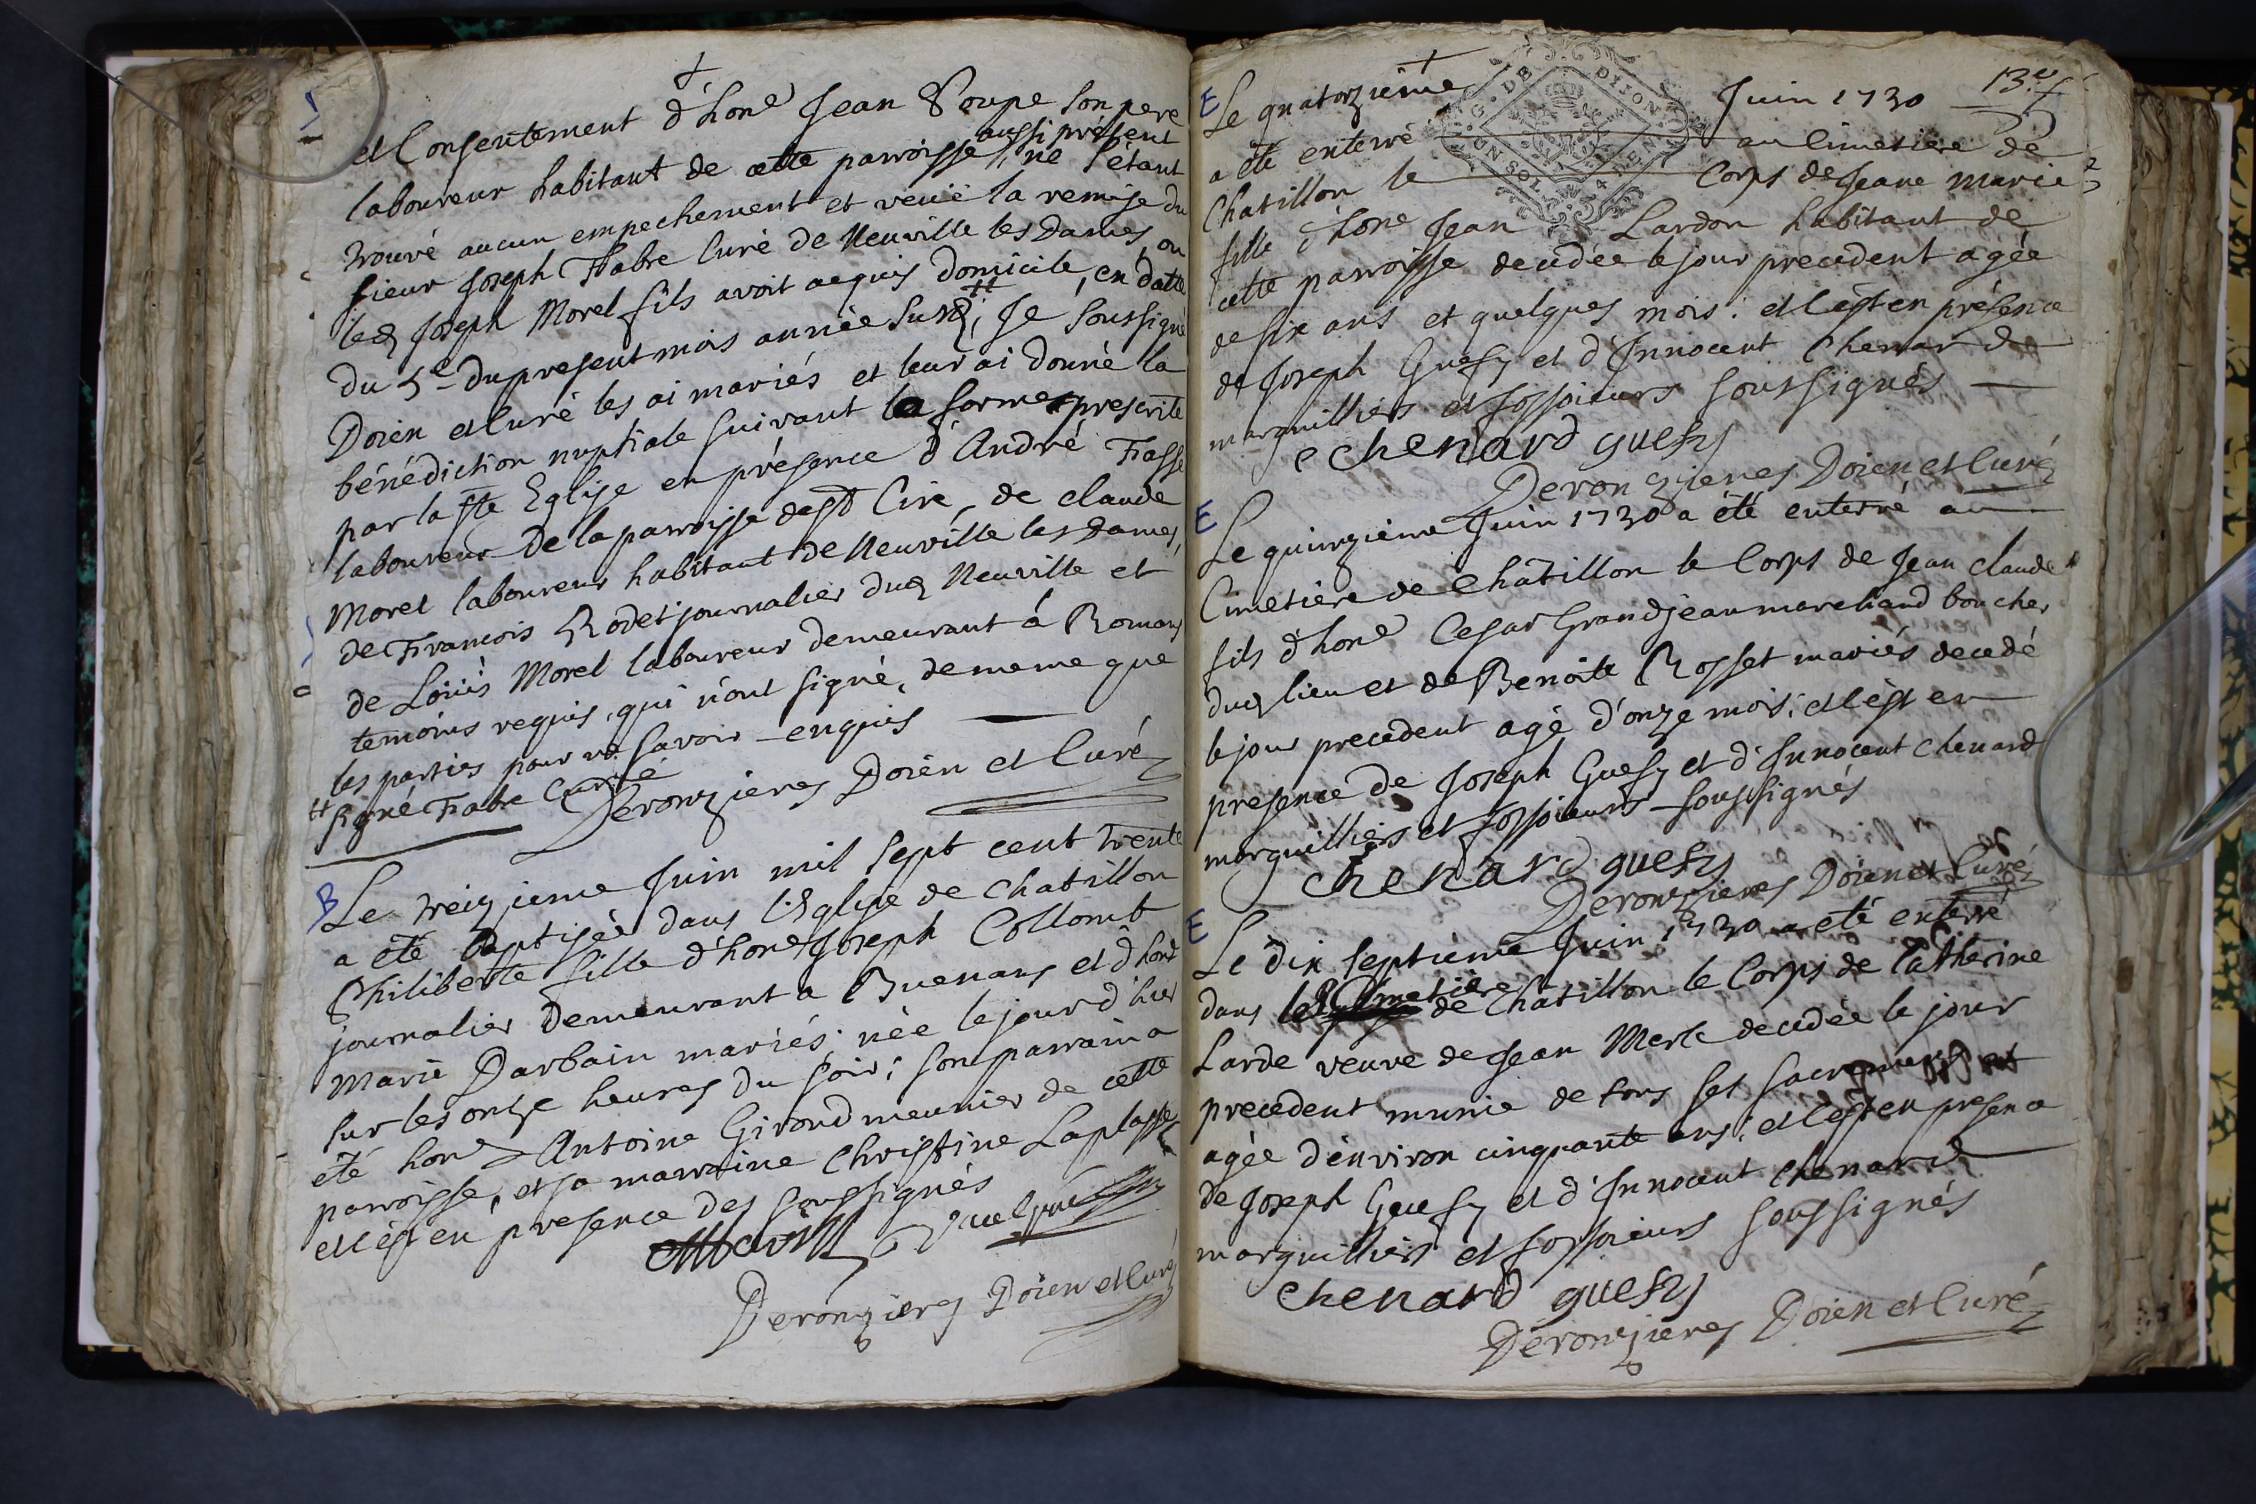 et Consentement d'hone Jean Poupe son pere
laboureur habitant de cette parroisse aussi présent, ne s'étant
trouvé aucun empechement et veüe la remise du
sieur Joseph Fabre Curé de Neuville les Dames, ou
led Joseph Morel fils avoit acquis domicile, en datte
du 5e du present mois année susd ++; Je soussigné
Doien et Curé les ai mariés et leur ai donné la
bénédiction nuptiale suivant la forme prescrite
par la ste Eglise en présence d'André Fasse
laboureur de la parroisse de st Cire, de claude
Morel laboureur habitant de Neuville les Dames,
de Francois Rodet journalier dud Neuville et
de Loüis Morel laboureur demeurant á Romans
temoins requis, qui n'ont signé, de meme que
les parties pour ne savoir enquis
++ signé Fabre Curé
Deronzieres Doien et Curé
B
Le treizieme Juin mil sept cent trente
a été baptisée dans l'Eglise de Chatillon
Philiberte fille d'hone Joseph Collomb
journalier demeurant a Buenans et d'hone
Marie Darbain mariés; née le jour d'hier
sur les onze heures du soir; son parrain a
été hone Antoine Girond meunier de cette
parroisse, et sa marraine Christine Laplasse
et c'est en presence des soussignés
Deronzieres Doien et Curé
13e f
E
Le quatorzieme Juin 1730
a été enterré au Cimetiere de
Chatillon le Corps de Jeane Marie
fille d'hone Jean Lardon habitant de
cette parroisse decédée le jour precedent agée
de six ans et quelques mois: et c'est en présence
de Joseph Guesy et d'Innocent Chenard
marguilliers et fossoieurs soussignés
chenard guesy
Deronzieres Doien et Curé
G. DE DIJON
UN SOL 4 DEN
E
Le quinzieme Juin 1730 a été enterré au
Cimetiere de Chatillon le Corps de Jean Claude
fils d'hone Cesar Grandjean marchand boucher
dud lieu et de Benoite Rosset mariés decedé
le jour precedent agé d'onze mois; et c'est en
presence de Joseph Guesy et d'Innocent Chenard
marguilliers et fossoieurs soussignés
chenard guesy
Deronzieres Doien et Curé
E
Le dix septieme Juin 1730 a été enterré
dans le Cimetiere de Chatillon le Corps de Catherine
Larde veuve de Jean Merle decedée le jour
precedent munie de tous ses sacremens et
agée d'environ cinquante ans; et c'est en presence
de Joseph Guesy et d'Innocent Chenard
marguilliers et fossoieurs soussignés
chenard guesy
Deronzieres Doien et Curé